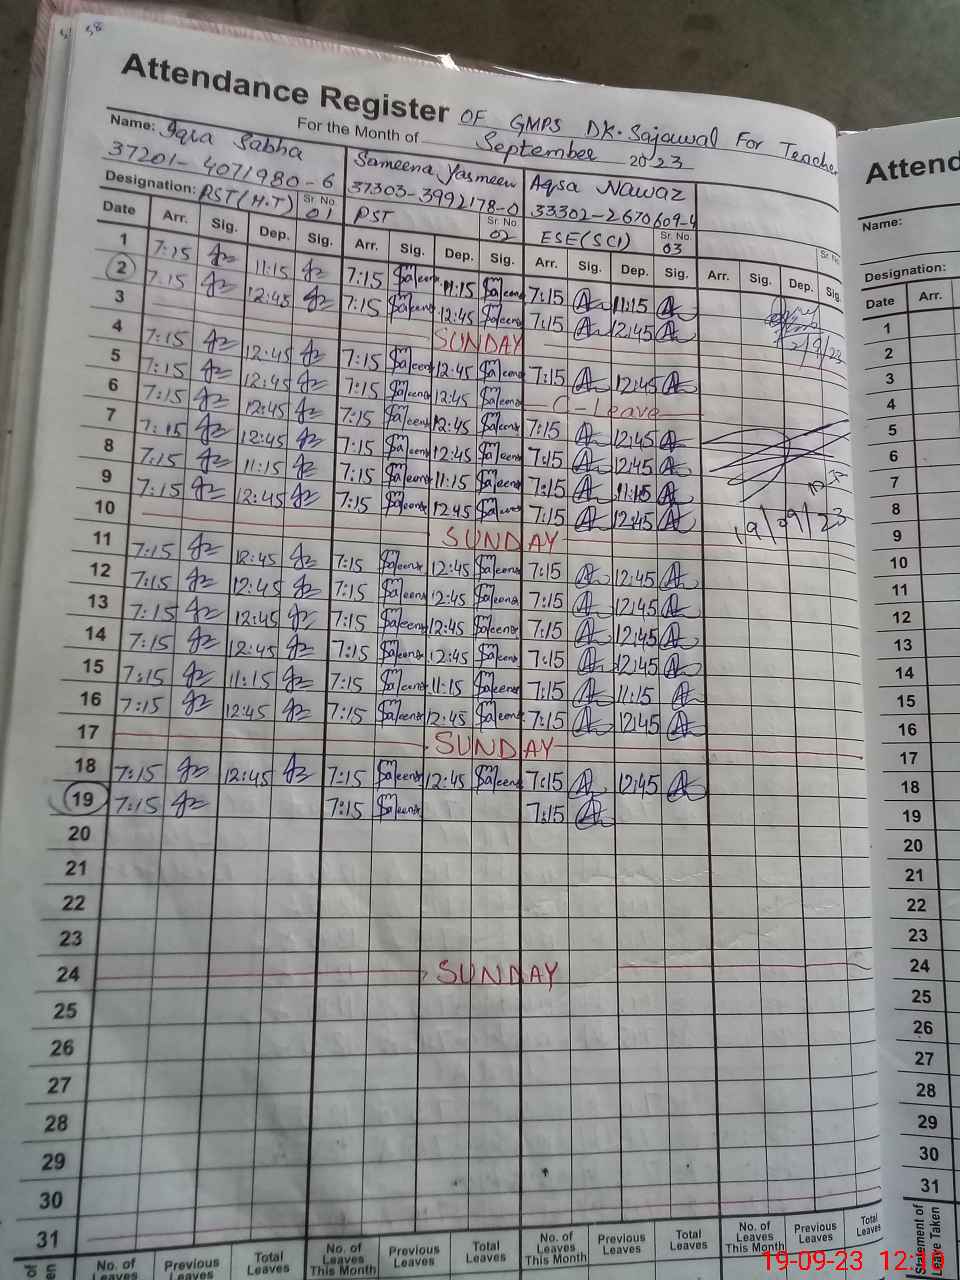 Attendance Register OF GMPS DK. Sajawal For Teacher
For the Month of September 2023
Name: Iqra Sabha Sameena Yasmeen Aqsa Nawaz
37201-4071980-6 37303-3992178-0 33302-2670609-4
Designation: PST (H.T) Sr. No. 01 PST Sr. No. 02 ESE (SCI) Sr. No. 03 Sr. No.
Date Arr. Sig. Dep. Sig. Arr. Sig. Dep. Sig. Arr. Sig. Dep. Sig. Arr. Sig. Dep. Sig.
1 7:15 11:15 7:15 11:15 7:15 11:15
2 7:15 12:45 7:15 12:45 7:15 12:45 2/9/23
3 SUNDAY
4 7:15 12:45 7:15 12:45 7:15 12:45
5 7:15 12:45 7:15 12:45 C-Leave
6 7:15 12:45 7:15 12:45 7:15 12:45
7 7:15 12:45 7:15 12:45 7:15 12:45
8 7:15 11:15 7:15 11:15 7:15 11:15
9 7:15 12:45 7:15 12:45 7:15 12:45 19/09/23
10 SUNDAY
11 7:15 12:45 7:15 12:45 7:15 12:45
12 7:15 12:45 7:15 12:45 7:15 12:45
13 7:15 12:45 7:15 12:45 7:15 12:45
14 7:15 12:45 7:15 12:45 7:15 12:45
15 7:15 11:15 7:15 11:15 7:15 11:15
16 7:15 12:45 7:15 12:45 7:15 12:45
17 SUNDAY
18 7:15 12:45 7:15 12:45 7:15 12:45
19 7:15 7:15 7:15
20
21
22
23
24 SUNDAY
25
26
27
28
29
30
31
No. of Leaves Previous Leaves Total Leaves No. of Leaves This Month Previous Leaves Total Leaves No. of Leaves This Month Previous Leaves Total Leaves No. of Leaves This Month Previous Leaves Total Leaves
Attend
Name:
Designation:
Date Arr.
1
2
3
4
5
6
7
8
9
10
11
12
13
14
15
16
17
18
19
20
21
22
23
24
25
26
27
28
29
30
31
Statement of Leave Taken
19-09-23 12:10